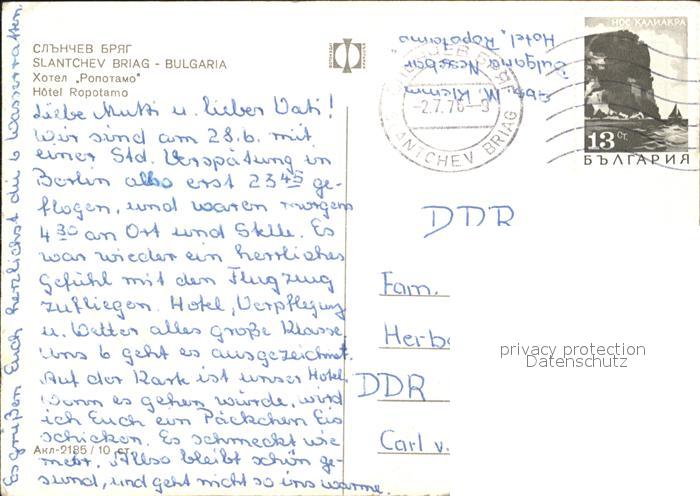 СЛЪНЧЕВ БРЯГ
SLANTCHEV BRIAG - BULGARIA
Хотел „Ропотамо“
Hôtel Ropotamo
Liebe Mutti u. lieber Vati!
Wir sind am 28.6. mit
einer Std. Verspätung in
Berlin also erst 23 45 ge-
flogen, und waren morgens
4 30 an Ort und Stelle. Es
war wieder ein herrliches
Gefühl mit dem Flugzeug
zufliegen. Hotel, Verpflegung
u. Wetter alles große Klasse.
Uns 6 geht es ausgezeichnet.
Auf der Karte ist unser Hotel.
Wenn es gehen würde, wird
ich Euch ein Päckchen Eis
schicken. Es schmeckt wie
mehr. Also bleibt schön ge-
sund, und geht nicht so ins warme.
Es grüßen Euch herzlichst die 6 Wasserratten
Акл-2185 / 10 ст.
Abs. M. Klemm
Bulgaria Nessebar
Hotel, Ropotamo
СЛЪНЧЕВ БРЯГ
-2.7.76-9
SLANTCHEV BRIAG
НОС КАЛИАКРА
13 СТ.
БЪЛГАРИЯ
DDR
Fam.
Herbe
DDR
Carl v.
privacy protection
Datenschutz